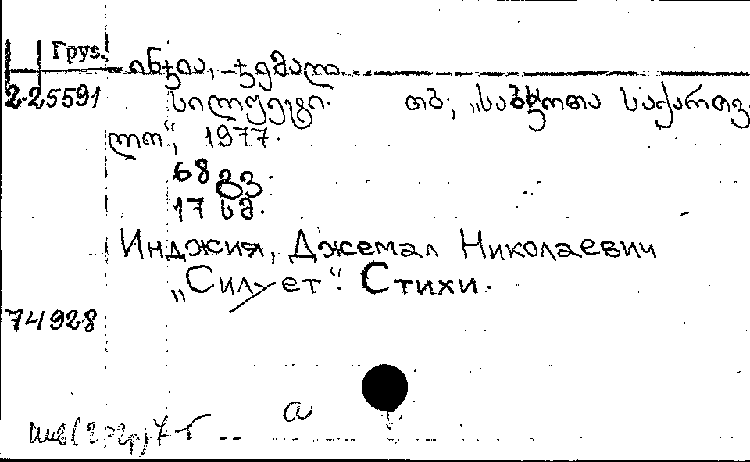 Груз.
ინჯია, ჯემალ
2-25591 სილუეტი. თბ., „საბჭოთა საქართვე
ლო“, 1977.
68 გვ.
17 სმ.
Инджия, Джемал Николаевич
„Силуэт“. Стихи.
74928
а